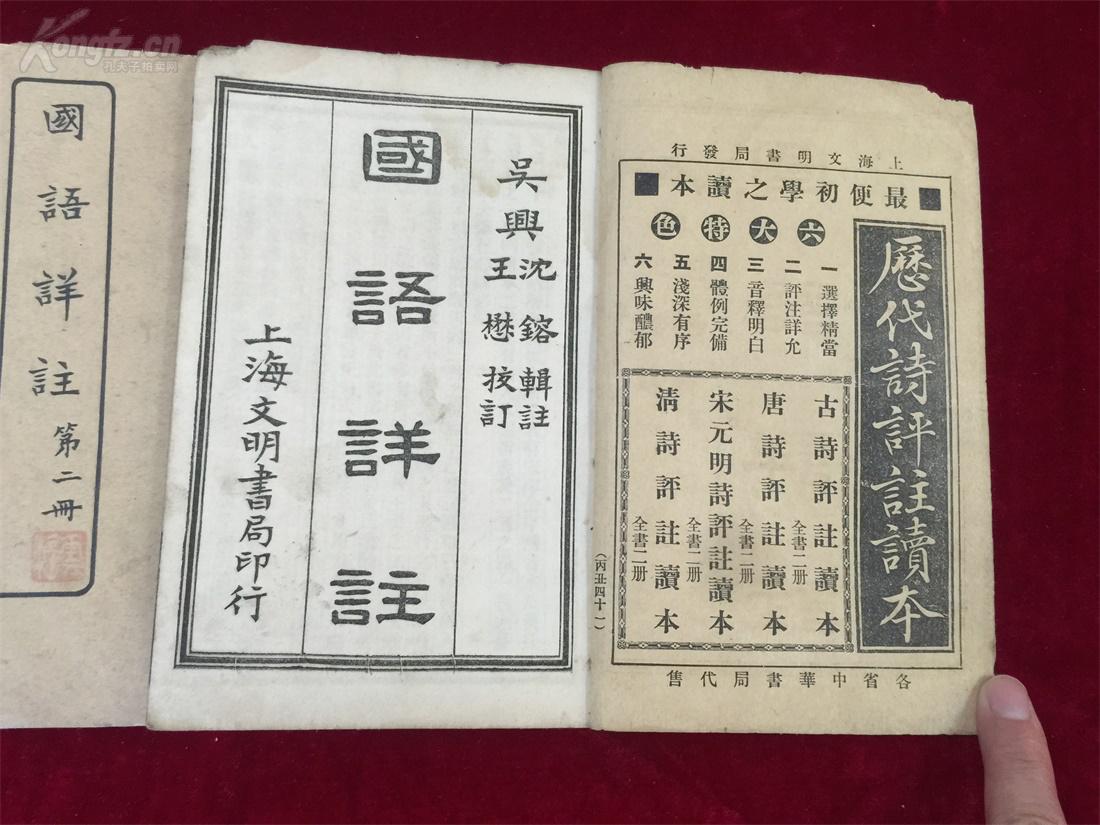 Kongfz.cn
孔夫子拍卖网
國語詳註
第二冊
吳興
沈鎔輯註
王懋挍訂
國語詳註
上海文明書局印行
上海文明書局發行
最便初學之讀本
六大特色
一選擇精當
二評注詳允
三音釋明白
四體例完備
五淺深有序
六興味醲郁
歷代詩評註讀本
古詩評註讀本
全書二册
唐詩評註讀本
全書二册
宋元明詩評註讀本
全書二册
清詩評註讀本
全書二册
各省中華書局代售
(丙丑四十一)